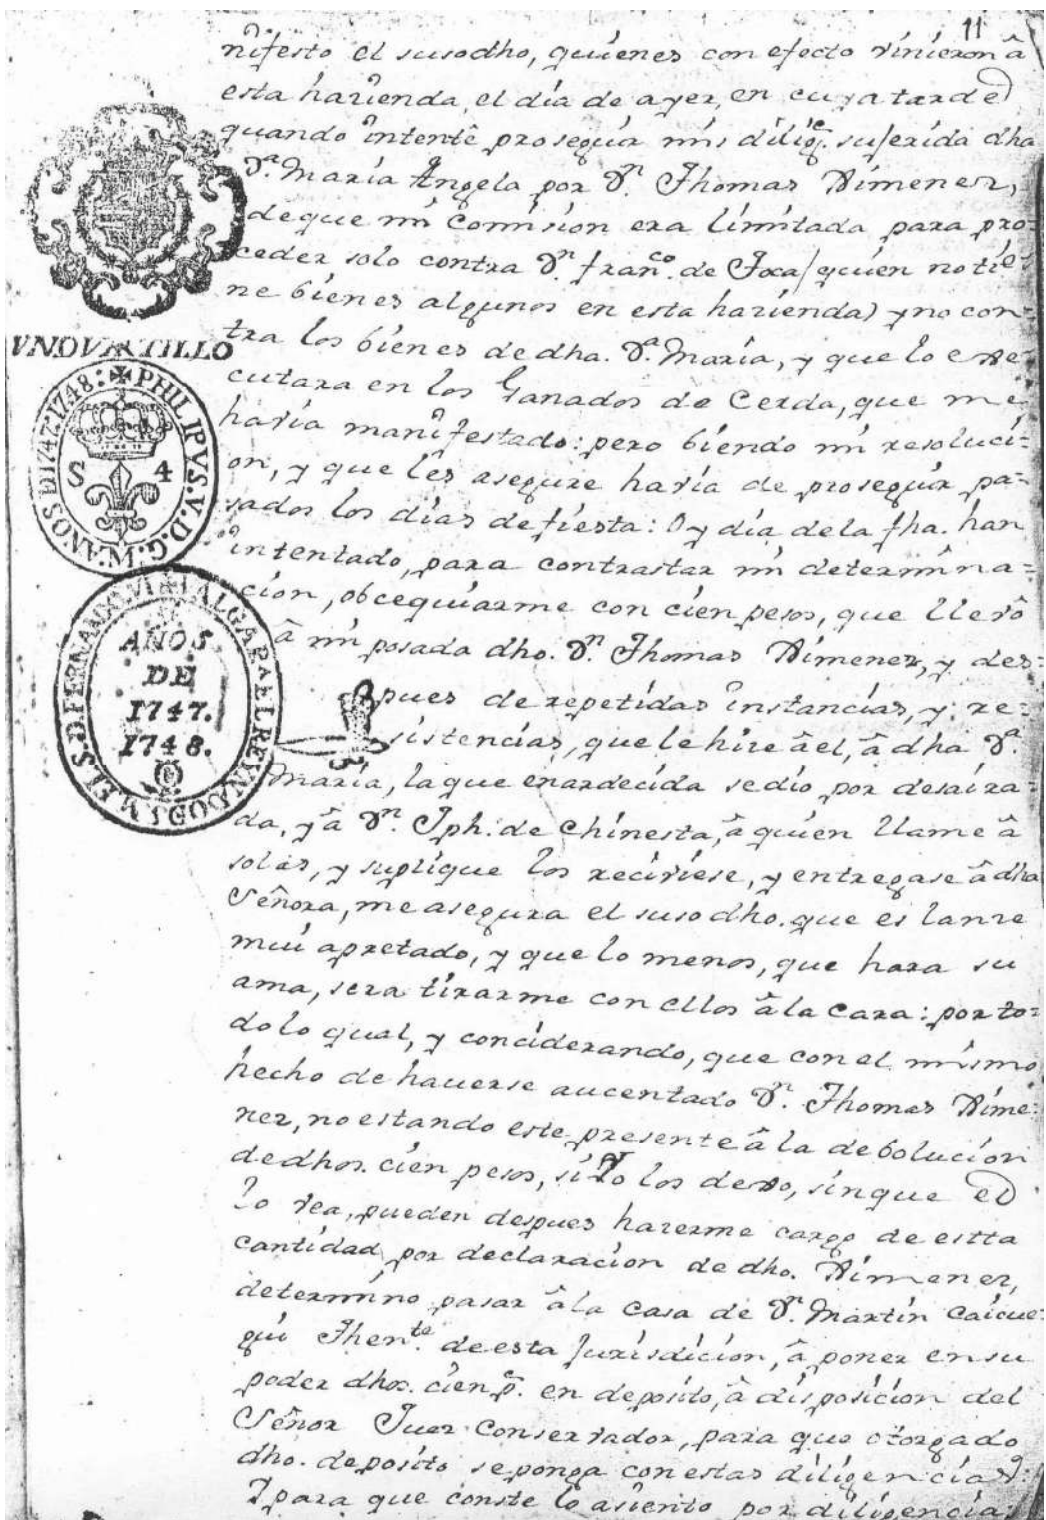 11
nifesto el susodho, quienes con efecto vinieron â
esta hazienda, el día de ayer, en cuya tarde
quando intentê proseguir mis dilig.ˢ sujerida dha
D.ª María Angela por D.ⁿ Thomas Ximenez,
de que mi Comision era limitada para pro=
ceder solo contra D.ⁿ fran.co de Foxa (quien no tie=
ne bienes algunos en esta hazienda) y no con=
tra los bienes de dha. D.ª María, y que lo exe=
cutara en los Ganados de Cerda, que me
havía manifestado: pero biendo mi resoluci=
on, y que les asegure havía de proseguir pa=
sados los días de fiesta: Oy día de la fha. han
intentado, para contrastar mi determina=
cion, obcequiarme con cien pesos, que llevô
â mi posada dho. D.ⁿ Thomas Ximenez, y des=
pues de repetidas instancias, y re=
sistencias, que le hize â el, â dha D.ª
María, la que enardecida se dio por desaira=
da, y â D.ⁿ Jph. de Chinesta, â quien llame â
solas, y suplique los reciviese, y entregase â dha
Señora, me asegura el susodho. que es lanze
mui apretado, y que lo menos, que hara su
ama, sera tirarme con ellos â la cara: por to=
do lo qual, y conciderando, que con el mismo
hecho de hauerse aucentado D.ⁿ Thomas Xime=
nez, no estando este presente â la debolucion
de dhos. cien pesos, si Yo los dexo, sin que el
lo vea, pueden despues hazerme cargo de estta
cantidad, por declaracion de dho. Ximenez,
determino pasar â la casa de D.ⁿ Martin Caicue=
gui Then.te de esta Jurisdicion, â poner en su
poder dhos. cien p.ˢ en deposito, â disposicion del
Señor Juez Conservador, para que otorgado
dho. deposito se ponga con estas diligencias:
Y para que conste lo asiento por diligencia:
VN QVARTILLO
PHILIPVS. V. D. G. ANOS D 1747: 1748:
S 4
VALGA PARA EL REYNDO D S. M. EL S. D. FERNANDO. VI
AÑOS
DE
1747.
1748.